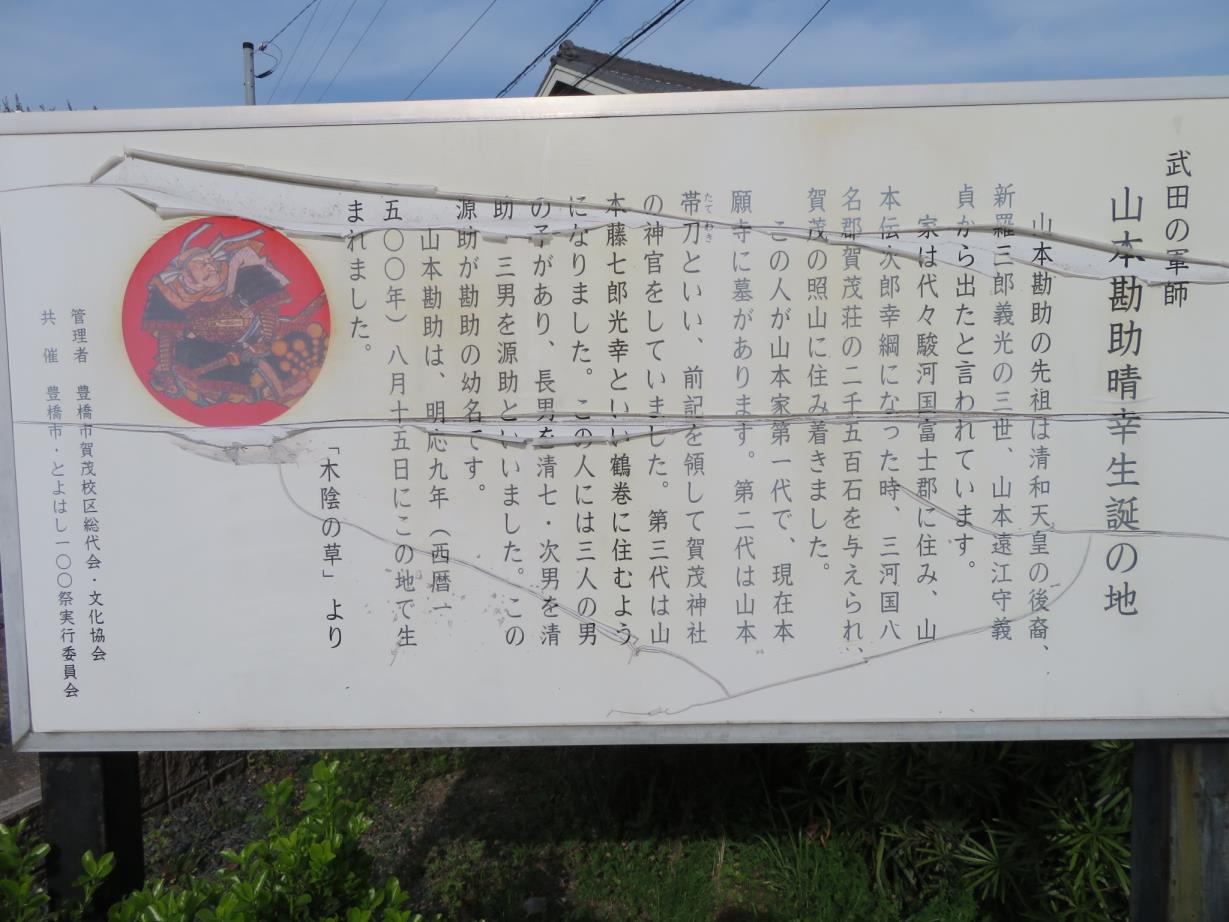 武田の軍師
山本勘助晴幸生誕の地
山本勘助の先祖は清和天皇の後裔、
新羅三郎義光の三世、山本遠江守義
貞から出たと言われています。
家は代々駿河国富士郡に住み、山
本伝次郎幸綱になった時、三河国八
名郡賀茂荘の二千五百石を与えられ、
賀茂の照山に住み着きました。
この人が山本家第一代で、現在本
願寺に墓があります。第二代は山本
帯刀といい、前記を領して賀茂神社
たてわき
の神官をしていました。第三代は山
本藤七郎光幸といい鶴巻に住むよう
になりました。この人には三人の男
の子があり、長男を清七・次男を清
助、三男を源助といいました。この
源助が勘助の幼名です。
山本勘助は、明応九年(西暦一
五〇〇年)八月十五日にこの地で生
まれました。
「木陰の草」より
管理者 豊橋市賀茂校区総代会・文化協会
共 催 豊橋市・とよはし一〇〇祭実行委員会